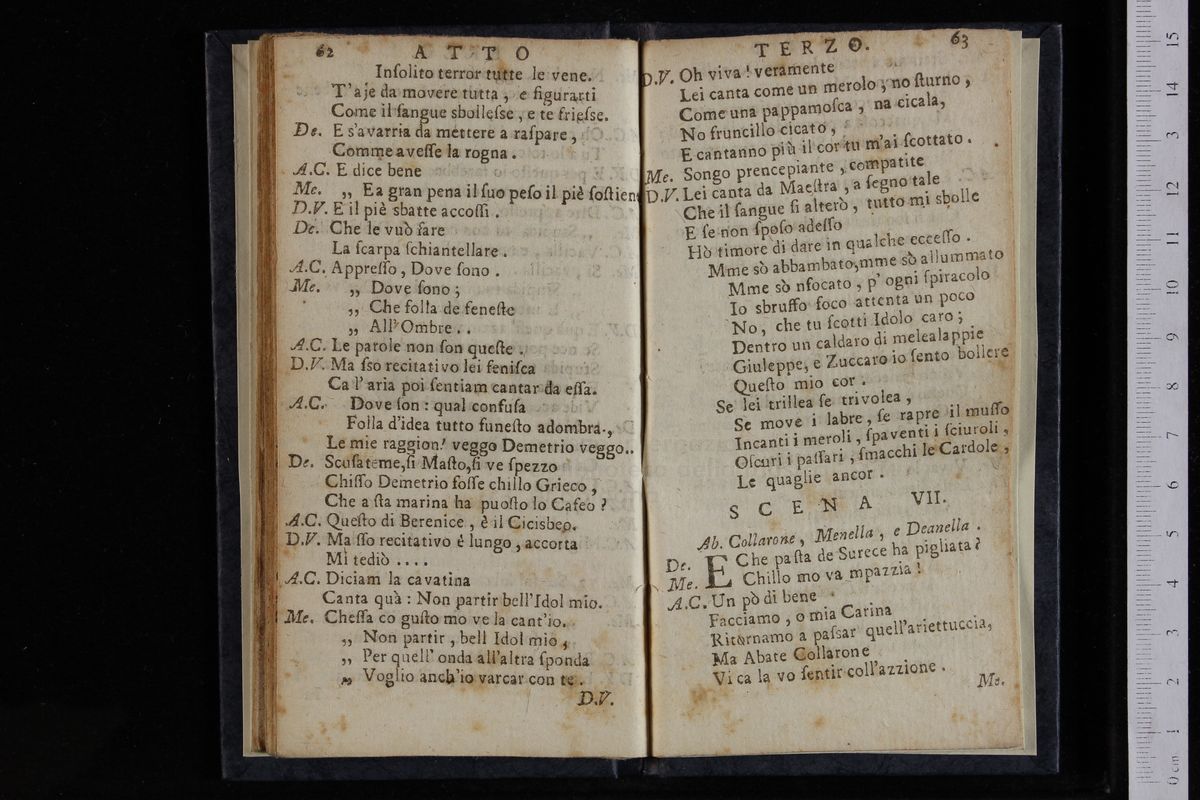 62 ATTO
Inſolito terror tutte le vene.
T'aje da movere tutta, e figurarti
Come il ſangue sbolleſse, e te frieſse.
De. E s'avarria da mettere a raſpare,
Comme aveſſe la rogna.
A.C. E dice bene
Me. „ Ea gran pena il ſuo peſo il piè ſoſtien
D.V. E il piè sbatte accoſſi.
De. Che le vuò fare
La ſcarpa ſchiantellare.
A.C. Appreſſo, Dove ſono.
Me. „ Dove ſono;
„ Che folla de feneſte
„ All' Ombre..
A.C. Le parole non ſon queſte.
D.V. Ma ſso recitativo lei feniſca
Ca l'aria poi ſentiam cantar da eſſa.
A.C. Dove ſon: qual confuſa
Folla d'idea tutto funeſto adombra.,
Le mie raggion! veggo Demetrio veggo..
De. Scuſateme, ſi Maſto, ſi ve ſpezzo
Chiſſo Demetrio foſſe chillo Grieco,
Che a ſta marina ha puoſto lo Cafeo?
A.C. Queſto di Berenice, è il Cicisbeo.
D.V. Ma ſſo recitativo è lungo, accorta
Mi tediò ....
A.C. Diciam la cavatina
Canta quà: Non partir bell'Idol mio.
Me. Cheſſa co guſto mo ve la cant'io.
„ Non partir, bell Idol mio,
„ Per quell'onda all'altra ſponda
„ Voglio anch'io varcar con te.
D.V.
TERZO. 63
D.V. Oh viva! veramente
Lei canta come un merolo, no ſturno,
Come una pappamoſca, na cicala,
No fruncillo cicato,
E cantanno più il cor tu m'ai ſcottato.
Me. Songo prencepiante, compatite
D.V. Lei canta da Maeſtra, a ſegno tale
Che il ſangue ſi alterò, tutto mi sbolle
E ſe non ſpoſo adeſſo
Hò timore di dare in qualche ecceſſo.
Mme sò abbambato, mme sò allummato
Mme sò nfocato, p' ogni ſpiracolo
Io sbruffo foco attenta un poco
No, che tu ſcotti Idolo caro;
Dentro un caldaro di melealappie
Giuleppe, e Zuccaro io ſento bollere
Queſto mio cor.
Se lei trillea ſe trivolea,
Se move i labre, ſe rapre il muſſo
Incanti i meroli, ſpaventi i ſciuroli,
Oſcuri i paſſari, ſmacchi le Cardole,
Le quaglie ancor.
SCENA VII.
Ab. Collarone, Menella, e Deanella.
De. E Che paſta de Surece ha pigliata?
Me. Chillo mo va mpazzia!
A.C. Un pò di bene
Facciamo, o mia Carina
Ritornamo a paſsar quell'ariettuccia,
Ma Abate Collarone
Vi ca la vo ſentir coll'azzione.
Me.